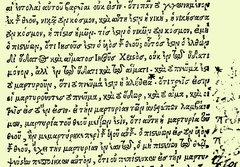 αἱ ἐντολαὶ αὐτοῦ βαρεῖαι οὐκ εἰσίν. ὅτι πᾶν τὸ γεγεννημένον ἐκ
τοῦ θεοῦ, νικᾷ τὸν κόσμον, καὶ αὕτη ἐστὶν ἡ νίκη, ἡ νικήσασα
τὸν κόσμον, ἡ πίστις ἡμῶν. τίς ἐστιν ὁ νικῶν τὸν κόσμον, εἰ μὴ
ὁ πιστεύων, ὅτι Ἰησοῦς ἐστιν ὁ υἱὸς τοῦ θεοῦ; οὗτός ἐστιν ὁ ἐλθὼν
δι' ὕδατος καὶ αἵματος Ἰησοῦς Χριστός, οὐκ ἐν τῷ ὕδατι
μόνον, ἀλλ' ἐν τῷ ὕδατι καὶ αἵματι, καὶ τὸ πνεῦμά ἐστι τὸ
μαρτυροῦν, ὅτι τὸ πνεῦμά ἐστιν ἡ ἀλήθεια. ὅτι τρεῖς εἰσιν
οἱ μαρτυροῦντες τὸ πνεῦμα, καὶ τὸ ὕδωρ, καὶ τὸ αἷμα, καὶ οἱ τρεῖς
εἰς τὸ ἕν εἰσιν. εἰ τὴν μαρτυρίαν τῶν ἀνθρώπων λαμβάνομεν,
ἡ μαρτυρία τοῦ θεοῦ μείζων ἐστίν, ὅτι αὕτη ἐστὶν ἡ μαρτυρία τοῦ
θεοῦ, ἣν μεμαρτύρηκε περὶ τοῦ υἱοῦ αὐτοῦ. ὁ πιστεύων εἰς τὸν υἱὸν
τοῦ θεοῦ, ἔχει τὴν μαρτυρίαν ἐν ἑαυτῷ, ὁ μὴ πιστεύων τῷ θεῷ
ψεύστην πεποίηκεν αὐτόν, ὅτι οὐ πεπίστευκεν εἰς τὴν